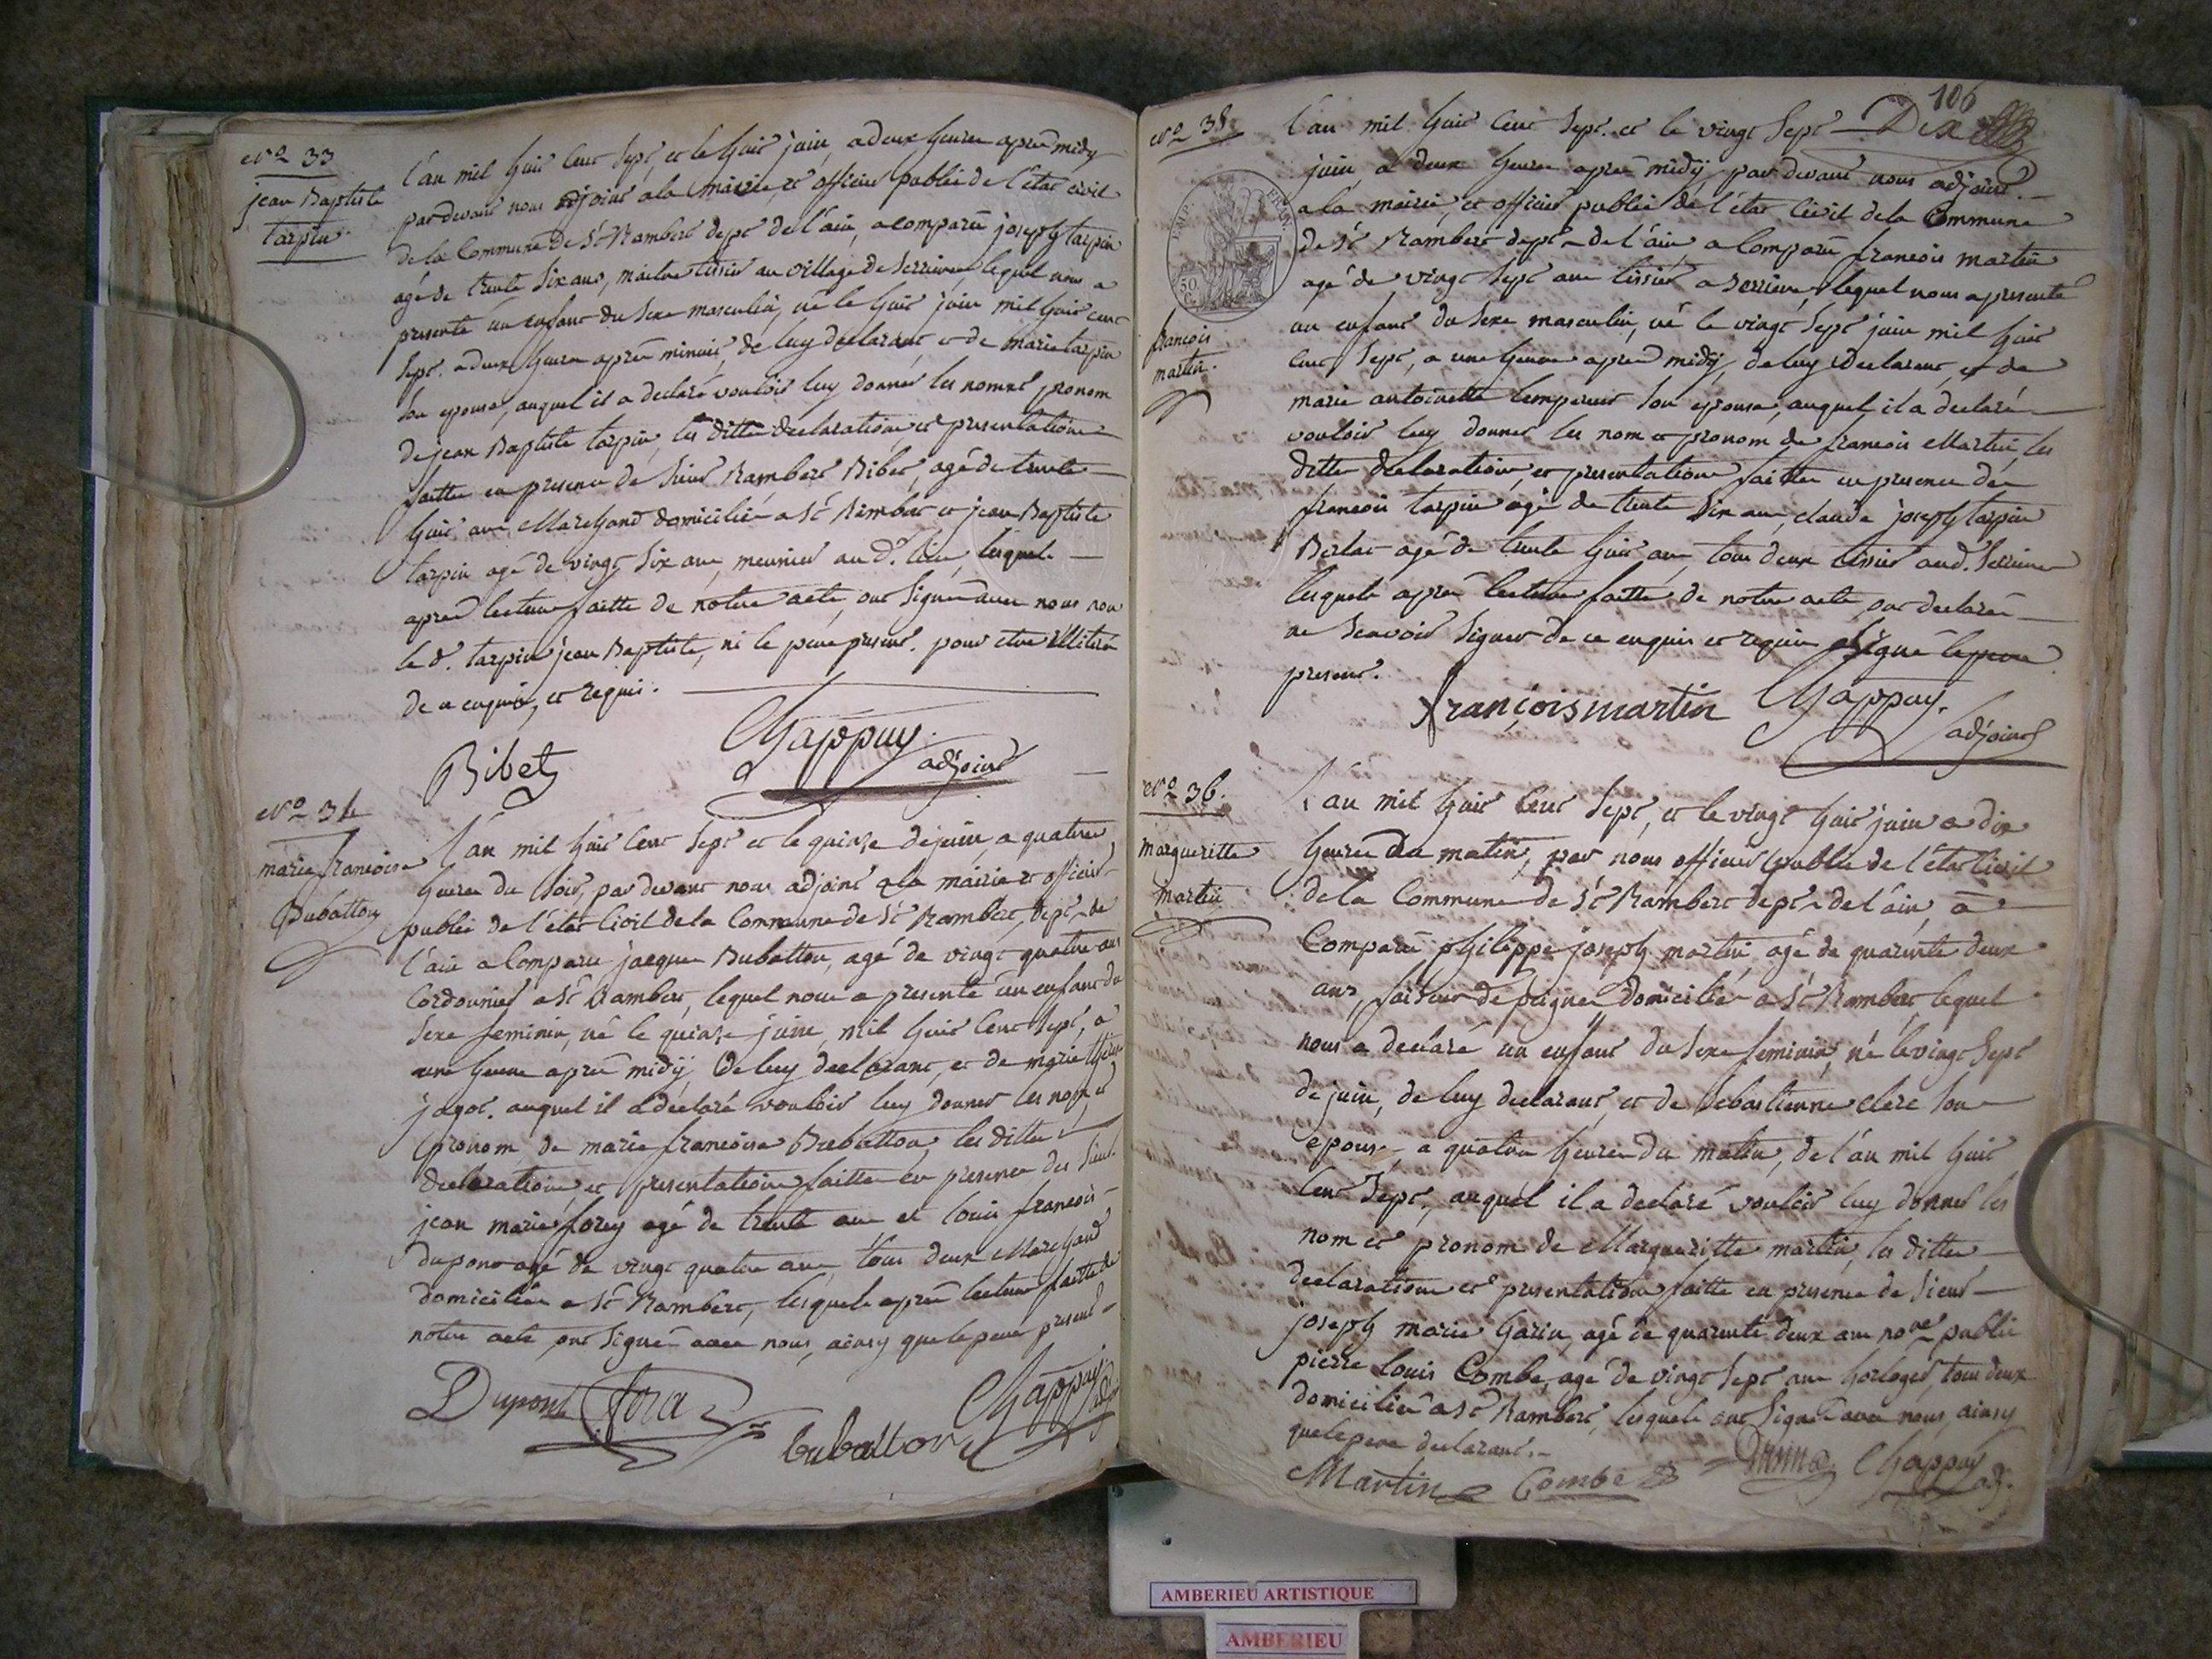 N.o 33
jean Baptiste
tarpin.
L'an mil huit cent sept, et le huit juin, a deux heures apres midy
par devant nous adjoint a la mairie, et officier public de l'état civil
de la Commune de St Rambert dept de l'ain, a comparu joseph tarpin
agé de trente six ans, maitre tissier au village de Serrieres, lequel nous a
presenté un enfant du Sexe masculin, né le huit juin mil huit cent
Sept. a deux heures apres minuit, de luy declarant, et de marie tarpin
Son epouse, auquel il a declaré vouloir luy donner les noms et pronom
de jean Baptiste tarpin, les dittes declarations et presentations
faittes en presence de Sieur Rambert Bibet, agé de trente
huit ans Marchand domicilié a St Rambert et jean Baptiste
tarpin agé de vingt six ans, meunier au d. lieu, lesquels
apres lecture faitte de notre acte, ont Signé avec nous non
le d. tarpin jean Baptiste, ni le pere present. pour etre illitéré
de ce enquis, et requis.
Bibet Chappuy
adjoint
N.o 34
marie francoise
Bubatton
L'an mil huit cent sept et le quinze de juin, a quatre
heures du soir, par devant nous adjoint a la mairie et officier
public de l'état Civil de la Commune de St Rambert, dept de
l'ain a Comparu jacques Bubatton, agé de vingt quatre ans
Cordonnier a St Rambert, lequel nous a presenté un enfant du
Sexe feminin, né le quinze juin, mil huit Cent Sept, a
une heure apres midy, de luy declarant, et de marie
jagot. auquel il a declaré vouloir luy donner les nom et
pronom de marie francoise Bubatton, les dittes
declarations et presentations faittes en presence des Sieurs
jean marie forey agé de trente ans et louis francois
dupont agé de vingt quatre ans, tous deux Marchand
domiciliés a St Rambert, lesquels apres lecture faitte de
notre acte ont Signé avec nous, ainsy que le pere present
Dupont bubatton Chappuy
106
N.o 35
françois
martin.
EMP. FRAN.
50
L'an mil huit Cent Sept. et le vingt Sept
juin, a deux heures apres midy par devant nous adjoint
a la mairie, et officier public de l'état Civil de la Commune
de St Rambert dept de l'ain a Comparu francois martin
agé de vingt Sept ans tissier a Serrieres, lequel nous a presenté
un enfant du Sexe masculin, né le vingt Sept juin mil huit
Cent Sept, a une heure apres midy, de luy declarant, et de
marie antoinette lempereur Son epouse, auquel il a declaré
vouloir luy donner les nom et pronom de francois Martin, les
dittes declarations, et presentations faittes en presence de
francois tarpin agé de trente Six ans, claude joseph tarpin
agé de trente huit ans, tous deux tissier aud. Serrieres
lesquels apres lecture faitte de notre acte, ont declaré
ne Scavoir Signer de ce enquis et requis a Signé le pere
present.
françois martin Chappuy.
adjoint
N.o 36.
Margueritte
martin
L'an mil huit Cent Sept, et le vingt huit juin a dix
heures du matin, par nous officier public de l'état Civil
de la Commune de St Rambert dept de l'ain, a
Comparu philippe joseph martin, agé de quarente deux
ans, faiseur de peignes, domicilié a St Rambert lequel
nous a declaré un enfant du Sexe feminin, né le vingt Sept
de juin, de luy declarant, et de Sebastienne clerc Son
epouse a quatre heures du matin, de l'an mil huit
Cent Sept, auquel il a declaré vouloir luy donner les
nom et pronom de Margueritte martin, les dittes
declarations et presentations faitte en presence de Sieur
joseph marie agé de quarente deux ans public
pierre louis Combe, agé de vingt Sept ans horloger, tous deux
domiciliés a St Rambert, lesquels ont Signé avec nous, ainsy
que le pere declarant.
Martin Combe Chappuy adj.
AMBERIEU ARTISTIQUE
AMBERIEU